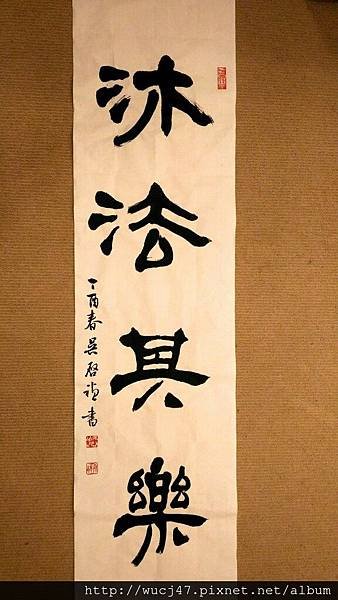 沐法其樂
丁酉春吳啓禎書
http://wucj47.pixnet.net/album